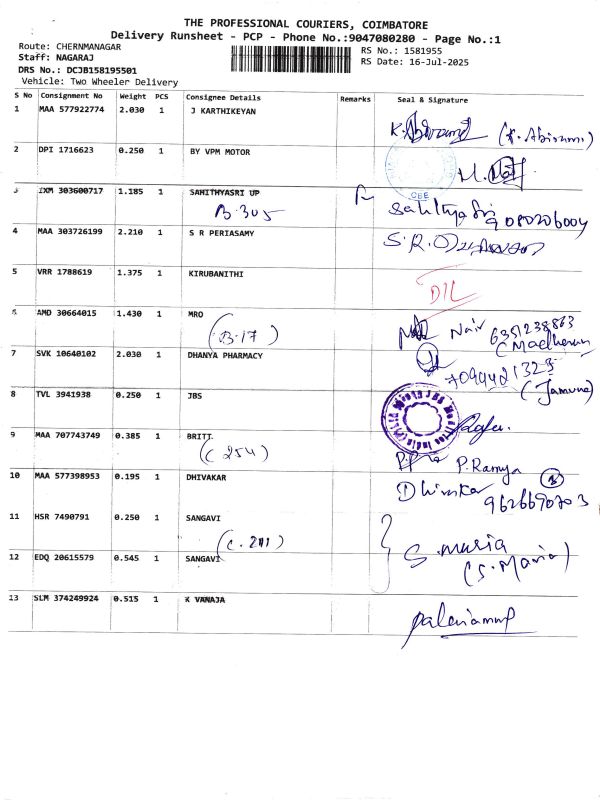 THE PROFESSIONAL COURIERS, COIMBATORE
Delivery Runsheet - PCP - Phone No.:9047080280 - Page No.:1
Route: CHERNMANAGAR
RS No.: 1581955
Staff: NAGARAJ
RS Date: 16-Jul-2025
DRS No.: DCJB158195501
Vehicle: Two Wheeler Delivery
S No Consignment No Weight PCS Consignee Details Remarks Seal & Signature
1 MAA 577922774 2.030 1 J KARTHIKEYAN
K. (K. Abirami)
2 DPI 1716623 0.250 1 BY VPM MOTOR
CBE
3 IXM 303600717 1.185 1 SAHITHYASRI UP
B.305
Sahithya Sri 9080206004
4 MAA 303726199 2.210 1 S R PERIASAMY
S.R.
5 VRR 1788619 1.375 1 KIRUBANITHI
DIL
6 AMD 30664015 1.430 1 MRO
(B.17)
Nair 6351238863
(Madhavan)
7 SVK 10640102 2.030 1 DHANYA PHARMACY
7094421323
(Jamuna)
8 TVL 3941938 0.250 1 JBS
JBS Meditec India
9 MAA 707743749 0.385 1 BRITT
(C 254)
P. Ramya
10 MAA 577398953 0.195 1 DHIVAKAR
Dhivakar 9626690703
11 HSR 7490791 0.250 1 SANGAVI
(C.211)
12 EDQ 20615579 0.545 1 SANGAVI
S. Maria
(S. Maria)
13 SLM 374249924 0.515 1 K VANAJA
Palaniammal